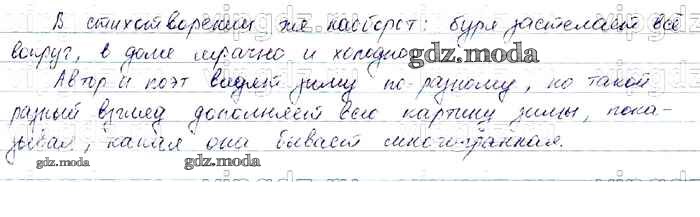 В стихотворении же наоборот: буря застелает всё
вокруг, в доме мрачно и холодно.
gdz.moscow
Автор и поэт видят зиму по-разному, но такой
разный взгляд дополняет всю картину зимы, пока-
зывая, какая она бывает многогранная.
gdz.moscow
gdz.moscow